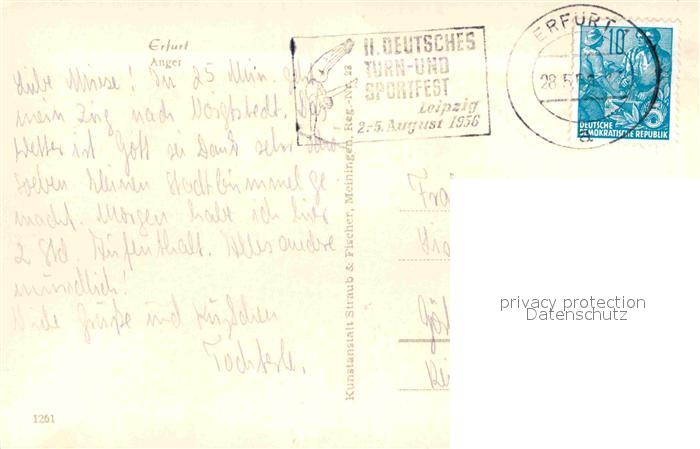 Erfurt
Anger
Liebe Miese! In 25 Min. geht
mein Zug nach Voigtstedt. Das
Wetter ist Gott sei Dank sehr
soeben kleinen Stadtbummel ge
macht. Morgen habe ich hier
2 Std. Aufenthalt. Alles andere
mündlich!
Viele Grüße und Küßchen
Tochterle.
1261
Kunstanstalt Straub & Fischer, Meiningen Reg.-Nr. 23
II. DEUTSCHES
TURN-UND
SPORTFEST
Leipzig
2.-5. August 1956
ERFURT
28.5.
a
10
DEUTSCHE
DEMOKRATISCHE REPUBLIK
privacy protection
Datenschutz